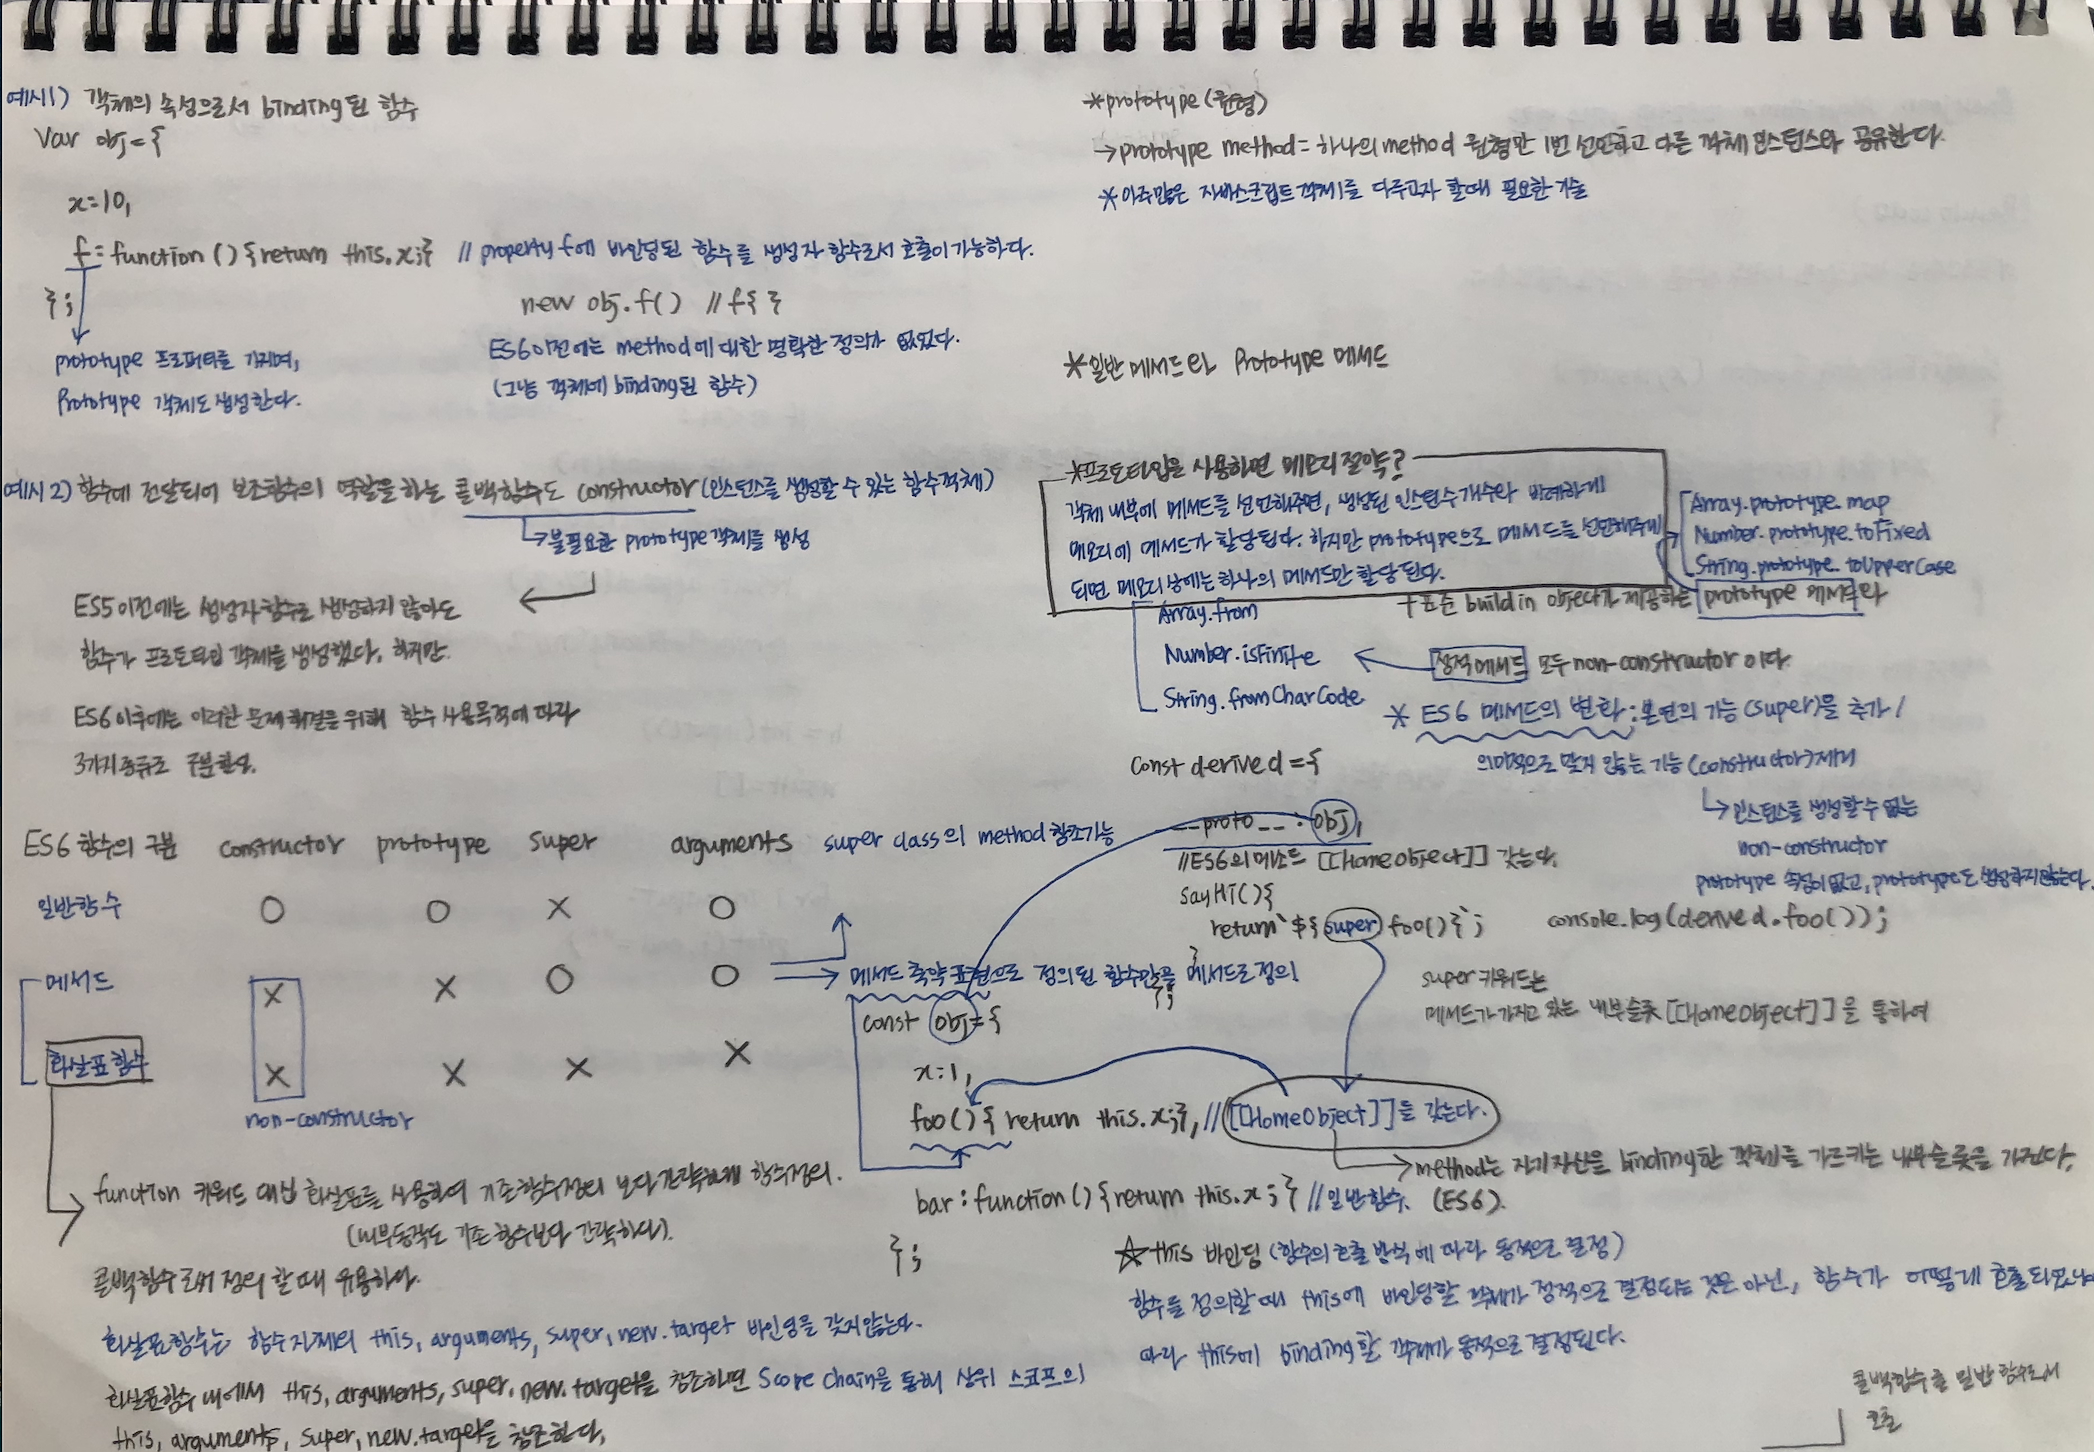 예시1) 객체의 속성으로서 binding된 함수
var obj={
x=10,
f=function(){return this.x;} // property f에 바인딩된 함수를 생성자 함수로서 호출이 가능하다.
};
new obj.f() // f{ }
prototype 프로퍼티를 가지며,
Prototype 객체도 생성한다.
ES6이전에는 method에 대한 명확한 정의가 없었다.
(그냥 객체에 binding된 함수)
예시2) 함수에 전달되어 보조함수의 역할을 하는 콜백함수도 constructor(인스턴스를 생성할 수 있는 함수객체)
↳불필요한 prototype객체를 생성
ES5이전에는 생성자 함수로 생성하지 않아도
함수가 프로토타입 객체를 생성했다. 하지만
ES6이후에는 이러한 문제 해결을 위해 함수 사용목적에 따라
3가지 종류로 구분한다.
ES6 함수의 구분 constructor prototype super arguments
일반함수 O O X O
메서드 X X O O
화살표함수 X X X X
non-constructor
super class의 method 참조가능
메서드 축약표현으로 정의된 함수만을 메서드로 정의
const obj={
x:1,
foo(){ return this.x;}, // [[HomeObject]]를 갖는다.
bar:function(){return this.x;} // 일반함수. (ES6).
};
function 키워드 대신 화살표를 사용하여 기존함수정의 보다 간략하게 함수정의.
(내부동작도 기존 함수보다 간략하다).
콜백함수로써 정의 할 때 유용하다.
화살표함수는 함수자체의 this, arguments, super, new.target 바인딩을 갖지않는다.
화살표함수 내에서 this, arguments, super, new.target을 참조하면 Scope Chain을 통해 상위 스코프의
this, arguments, super, new.target을 참조한다.
*prototype(원형)
→prototype method=하나의 method 원형만 1번 선언하고 다른 객체 인스턴스와 공유한다.
*아주많은 자바스크립트 객체를 다루고자 할때 필요한 기술
*일반 메서드와 Prototype 메서드
*프로토타입을 사용하면 메모리 절약?
객체 내부에 메서드를 선언해주면, 생성된 인스턴스개수와 비례하게
메모리에 메서드가 할당된다. 하지만 prototype으로 메서드를 선언해주게
되면 메모리 상에는 하나의 메서드만 할당된다.
Array.prototype.map
Number.prototype.toFixed
String.prototype.toUpperCase
+표준 build in object가 제공하는 prototype 메서드와
정적메서드 모두 non-constructor 이다.
Array.from
Number.isFinite
String.fromCharCode
* ES6 메서드의 변화 : 본연의 기능(super)을 추가 /
의미적으로 맞지 않는 기능(constructor)제거
↳인스턴스를 생성할 수 없는
non-constructor
prototype 속성이 없고, prototype도 생성하지않는다.
const derived={
__proto__ : obj,
//ES6의 메소드 [[HomeObject]] 갖는다.
sayHi(){
return`${super.foo()}`;
}
};
console.log(derived.foo());
super 키워드는
메서드가 가지고 있는 내부슬롯 [[HomeObject]]을 통하여
→method는 자기자신을 binding한 객체를 가르키는 내부슬롯을 가진다.
☆this 바인딩 (함수의 호출 방식에 따라 동적으로 결정)
함수를 정의할 때 this에 바인딩할 객체가 정적으로 결정되는 것은 아닌, 함수가 어떻게 호출되었느냐
따라 this에 binding 할 객체가 동적으로 결정된다.
콜백함수를 일반 함수로서
호출